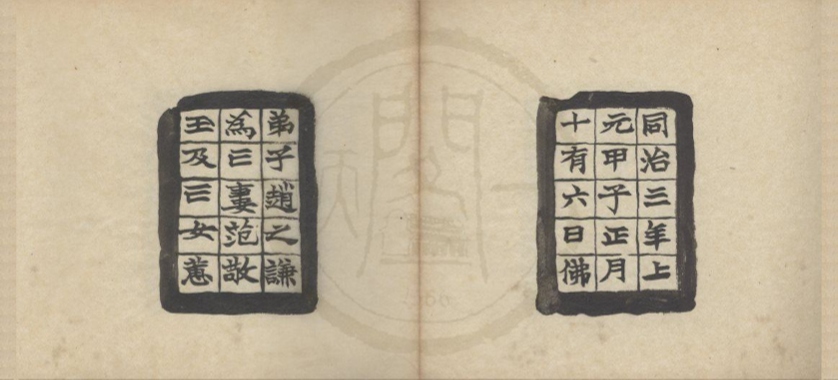 同治三年上
元甲子正月
十有六日佛
弟子趙之謙
為亡妻范敬
玉及亡女蕙